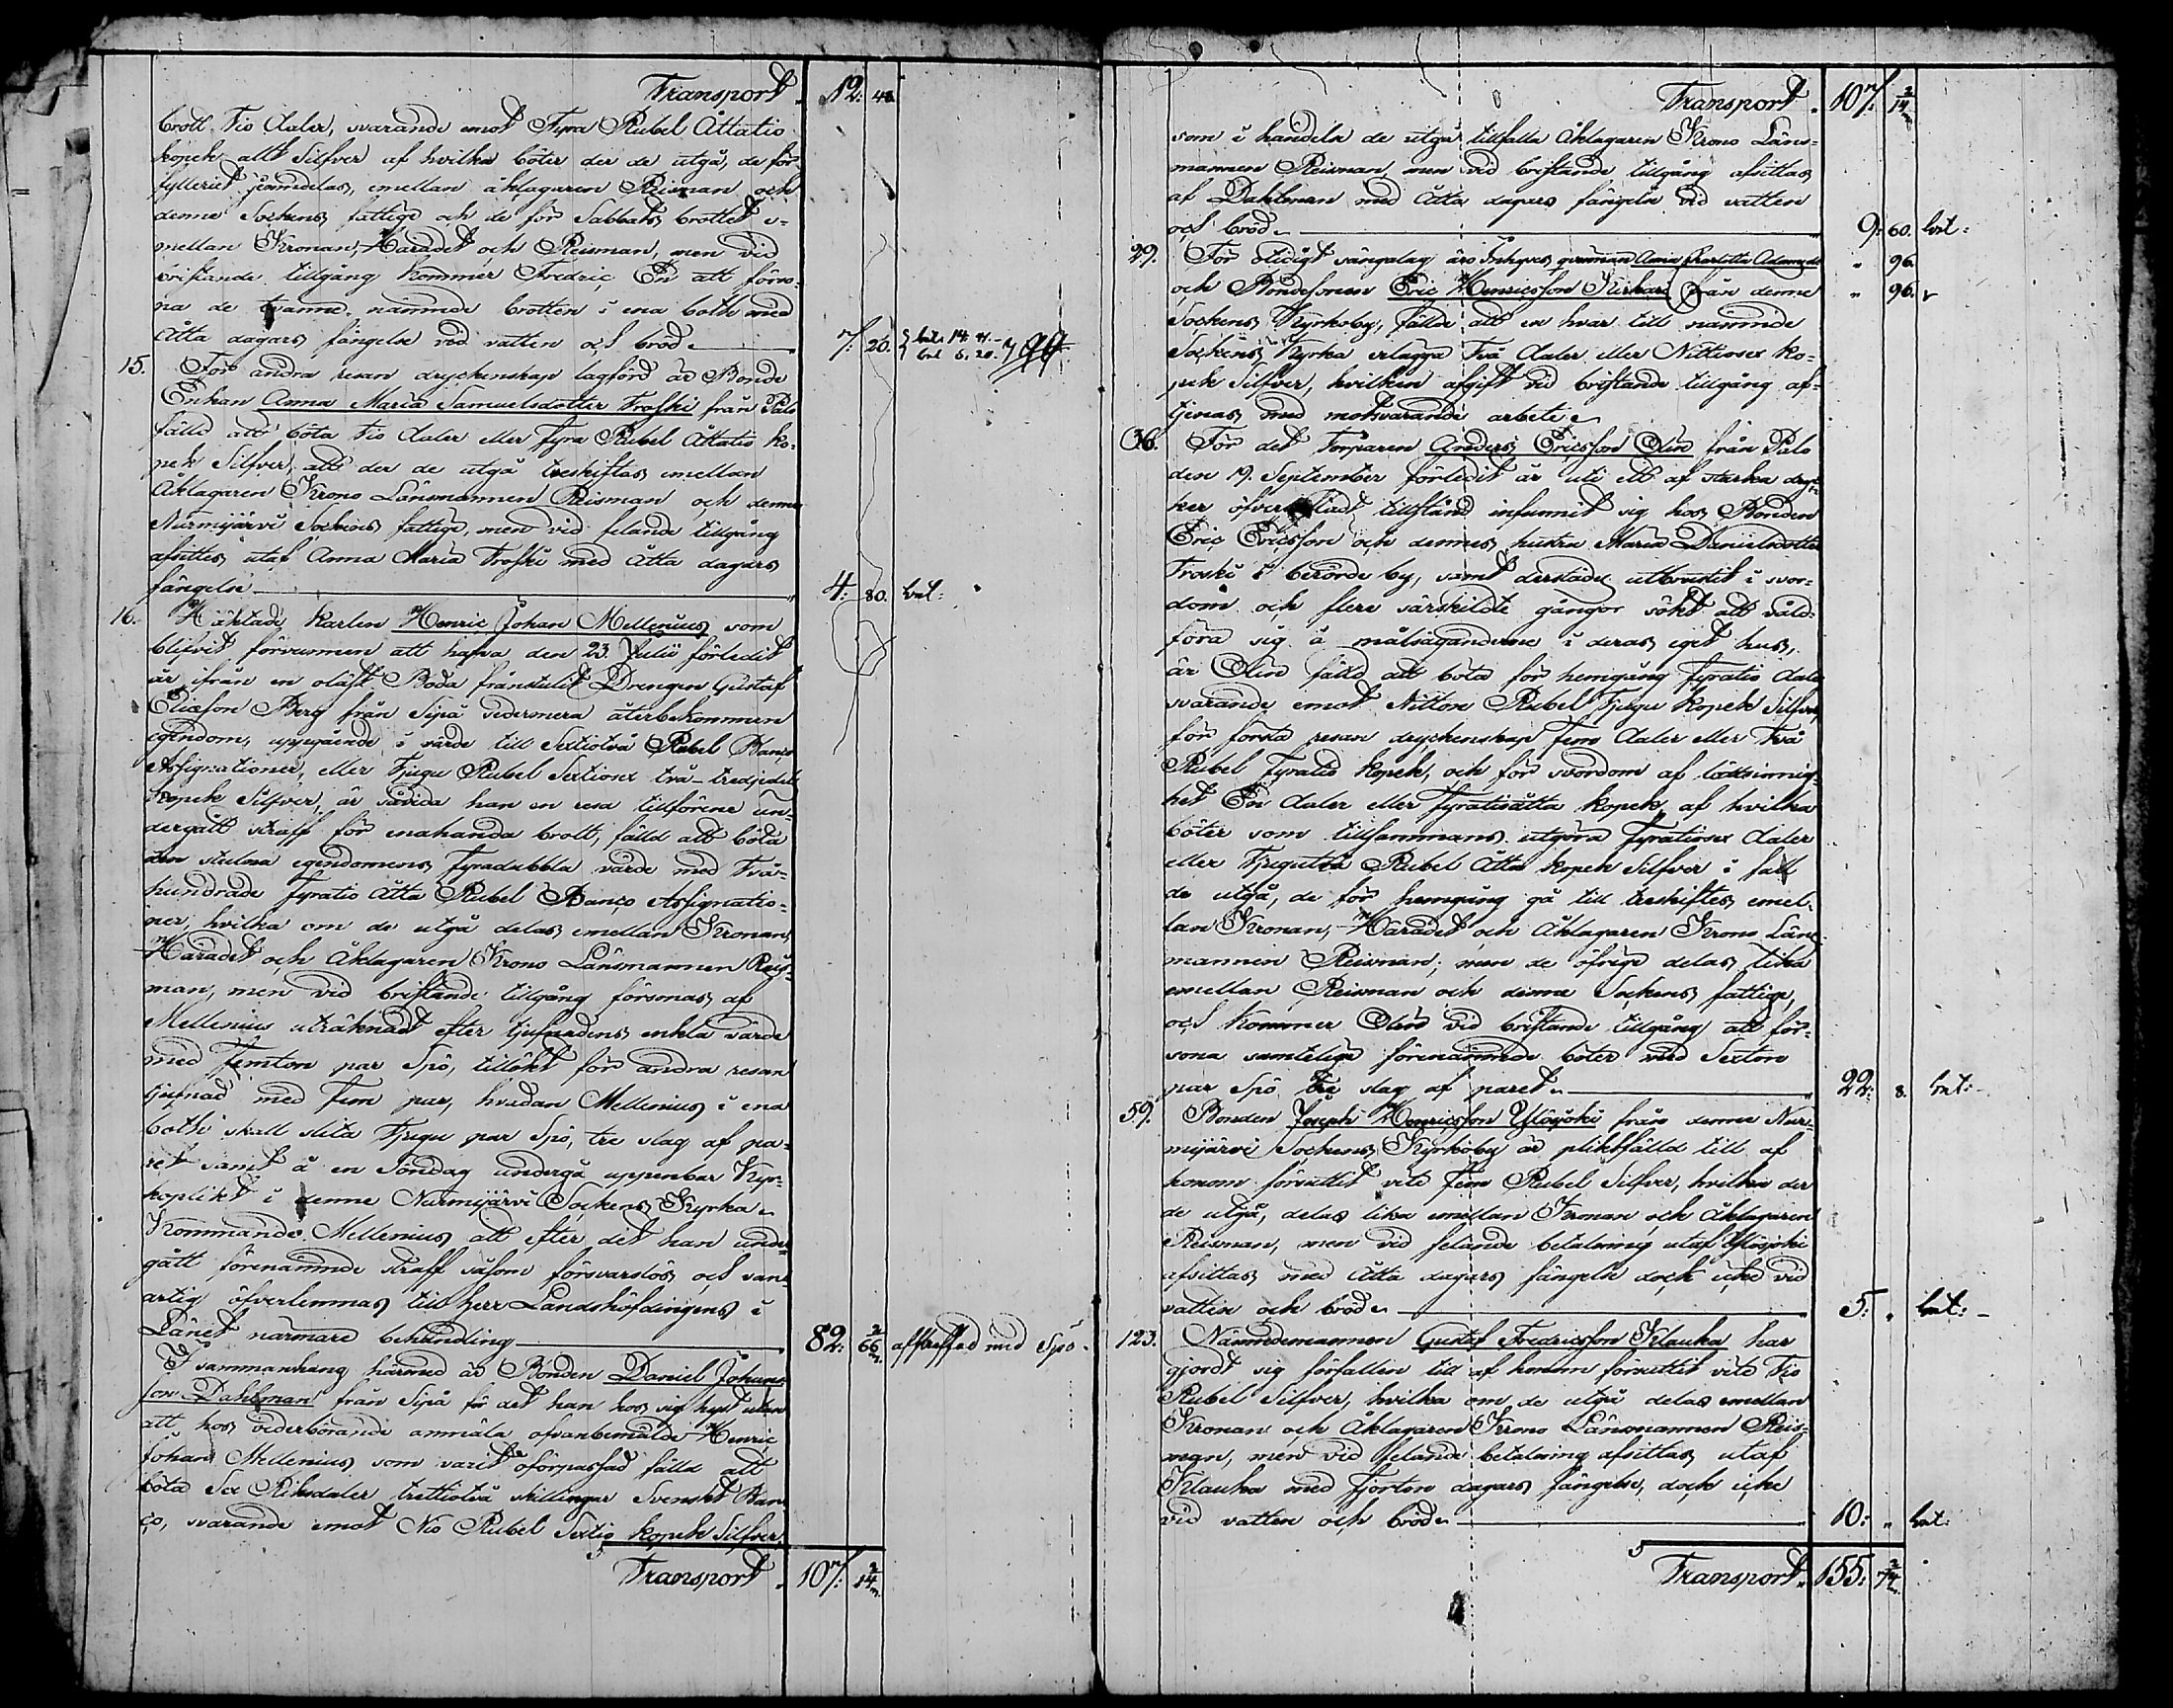 Transport. 12: 48.
brott Tio daler, svarande emot Fyra Rubel Åttatio
kopek allt Silfver af hvilka böter der de utgå, de för
fylleriet jemndelas, emellan åklagaren Reisman och
denne Sockens fattige och de för Sabbats brottet e-
mellan Kronan, Häradet och Reisman, men vid
bristande tillgång kommer Fredric En att förso-
na de tvänne nämnde brotten i ena botten med
Åtta dagars fängelse vid vatten och bröd. 7: 20.
15. För andra resan dryckenskap lagförd är Bonde
Enkan Anna Maria Samuelsdotter Trofki från Palo
fälld att böta Tio daler eller Fyra Rubel Åttatio ko-
pek Silfver, att der de utgå treskiftas emellan
Åklagaren Krono Länsmannen Reisman och denne
Nurmijärvi Sockens fattige, men vid felande tillgång
afsittes utaf Anna Maria Trofki med Åtta dagars
fängelse 4: 80. bet:
16. Häktade karlen Henric Johan Mellenius som
blifvit förvunnen att hafva den 23. Julii förledit
år ifrån en oläst Boda frånstulit Drengen Gustaf
Eliæson Berg från Sipä sedermera återbekommen
egendom, uppgående i värde till Sextiotvå Rubel Banco
Assignationer, eller Tjugu Rubel Sextiosex två-tredjedels
kopek Silfver, är såvida han en resa tillförene un-
dergått straff för enahanda brott, fälld att böta
den stulna egendomens fyradubbla värde med Två-
hundrade Fyratio Åtta Rubel Banco Assignatio-
ner, hvilka om de utgå delas emellan Kronan,
Häradet och Åklagaren Krono Länsmannen Reis-
man, men vid bristande tillgång försonas af
Mellenius uträknadt efter tjufnadens enkla värde
med Femton par Spö, tillökt för andra resan
tjufnad med Fem par, hvadan Mellenius i ena
botten skall slita Tjugu par Spö, tre slag af pa-
ret samt å en Söndag undergå uppenbar Kyr-
koplikt i denne Nurmijärvi Sockens Kyrka.
Kommande Mellenius att efter det han under-
gått förenämnde straff såsom försvarslös och van-
artig öfverlemnas till Herr Landshöfdingens i
Länet närmare behandling 82: 66 2/3. afstraffad med Spö.
I sammanhang härmed är Bonden Daniel Johans-
son Dahlman från Sipä för det han hos sig hyst utan
att hos vederbörande anmäla ofvanbemälde Henric
Johan Mellenius som varit oförpassad fälld att
böta Sex Riksdaler trettiotvå skillingar Svenskt Ban-
co, svarande emot Nio Rubel Sextio kopek Silfver,
Transport. 107: 14 2/3.
Transport. 107: 14 2/3
som i händelse de utgå tillfalla Åklagaren Krono Läns-
mannen Reisman, men vid bristande tillgång afsittas
af Dahlman med Åtta dagars fängelse vid vatten
och bröd. 9: 60. bet:
29. För otidigt sängalag äro Inhyses qvinnan Anna Charlotta Adamsdr " 96.
och Bondesonen Eric Henricsson Kirkari från denne " 96.
Sockens Kyrkoby, fällde att en hvar till nämnde
Sockens Kyrka erlägga Två daler eller Nittiosex ko-
pek Silfver, hvilken afgift vid bristande tillgång af-
tjenas med motsvarande arbete.
36. För det Torparen Anders Ericsson Olin från Palo
den 19. September förledit år uti ett af starka dryc-
ker öfverlastadt tillstånd infunnit sig hos Bonden
Eric Ericsson och dennes hustru Maria Danielsdotter
Troski i berörde by, samt derstädes utbrustit i svor-
dom och flere särskildte gångor sökt att våld-
föra sig å målsäganderne i deras eget hus,
är Olin fälld att böta för hemgång fyratio daler
svarande emot Nitton Rubel Tjugu kopek Silfver,
för första resan dryckenskap Fem daler eller Två
Rubel Fyratio kopek, och för svordom af lättsinnig-
het En daler eller Fyratioåtta kopek, af hvilka
böter som tillsammans utgöra Fyratiosex daler
eller Tjugutvå Rubel Åtta kopek Silfver i fall
de utgå, de för hemgång gå till treskiftes emel-
lan Kronan, Häradet och Åklagaren Krono Läns-
mannen Reisman; men de öfrige delas lika
emellan Reisman och denne Sockens fattige,
och kommer Olin vid bristande tillgång att för-
sona samtelige förenämnde böter med Sexton
par Spö tre slag af paret. 22: 8. bet:
59. Bonden Joseph Henricsson Ylösjoki från denne Nur-
mijärvi Sockens Kyrkoby är pliktfälld till af
honom försuttit vite Fem Rubel Silfver, hvilka der
de utgå, delas lika emellan Kronan och Åklagaren
Reisman, men vid felande betalning utaf Ylösjoki
afsittas med Åtta dagars fängelse dock icke vid
vatten och bröd. 5: " bet:
123. Nämndemannen Gustaf Fredricsson Klauka har
gjordt sig förfallen till af honom försuttit vite Tio
Rubel Silfver, hvilka om de utgå delas emellan
Kronan och Åklagaren Krono Länsmannen Reis-
man, men vid felande betalning afsittas utaf
Klauka med fjorton dagars fängelse, dock icke
vid vatten och bröd. 10: " bet:
Transport. 155: 74 2/3